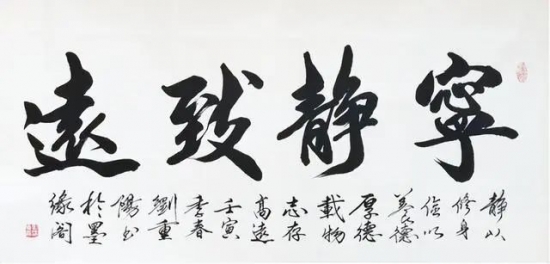 寧靜致遠
静以
修身
儉以
養德
厚德
載物
志存
高遠
壬寅
季春
劉重
陽书
於墨
緣阁